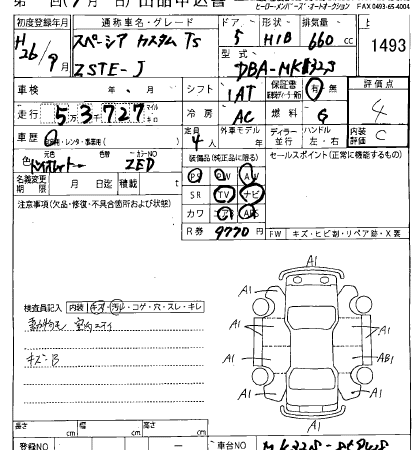 第 回(9月 日)出品申込書
ヒーローメンバーズ・オートオークション FAX 0493-65-4004
初度登録年月 通称車名・グレード ドア 形状 排気量
H26/9月 スペーシア カスタム TS 5 H1B 660cc 1493
ZSTE-J 型式 DBA-MK32S
車検 年 月 シフト 1AT 保証書 有・無 評価点
走行 5万3千727 マイル キロ 冷房 AC 燃料 G 4
車歴 自家用・レンタ・事業用( ) 定員 4人 外車モデル 年 ディーラー 並行 ハンドル 左・右 内装 C
色 元色 色替 カラーNO ZED
装備品(純正品に限る) セールスポイント(正常に機能するもの)
名義変更期限 月 日迄 積載 t
PS PW AW
SR TV ナビ
カワ エアB ABS
R券 9770円
注意事項(欠品・修復・不具合箇所および状態)
FW キズ・ヒビ割・リペア跡・X要
検査員記入 内装 キズ・汚れ・コゲ・穴・スレ・キレ
キズB
A1 A1
A1 A1
A1 A1
A1 AB1
A1 A1
A1
長さ cm 幅 cm 高さ cm
登録NO 車台NO MK32S-